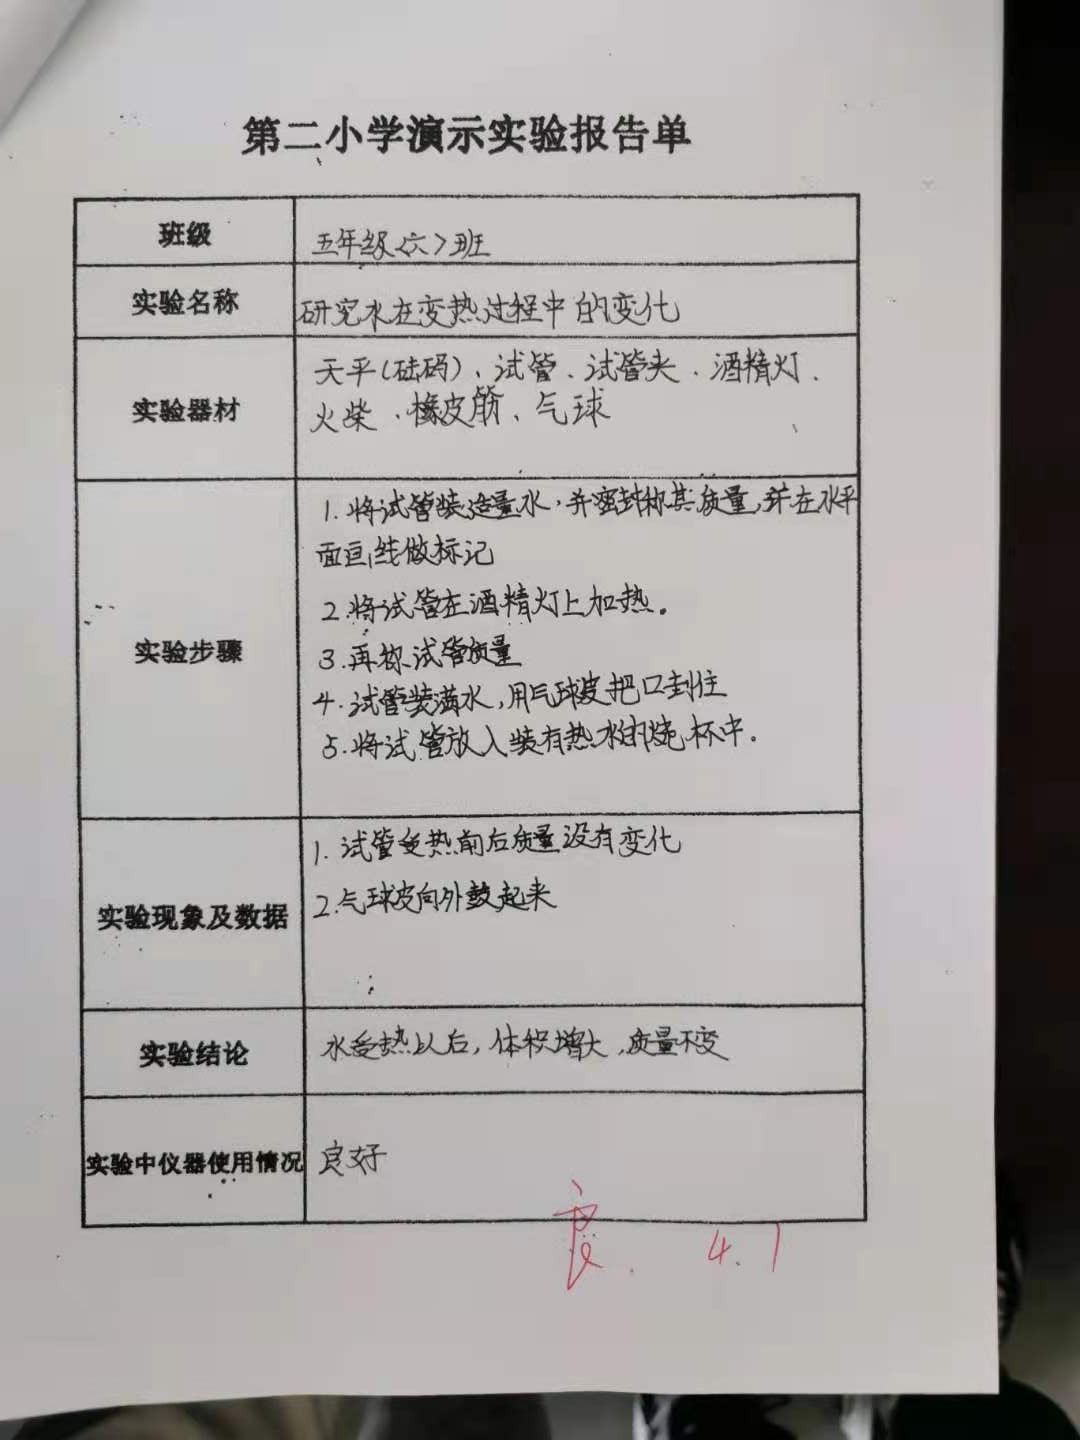 第二小学演示实验报告单
班级
五年级〈六〉班
实验名称
研究水在变热过程中的变化
实验器材
天平(砝码)、试管、试管夹、酒精灯、
火柴、橡皮筋、气球
实验步骤
1.将试管装适量水,并密封称其质量,并在水平
面画线做标记
2.将试管在酒精灯上加热。
3.再称试管质量
4.试管装满水,用气球皮把口封住
5.将试管放入装有热水的烧杯中.
实验现象及数据
1.试管受热前后质量没有变化
2.气球皮向外鼓起来
实验结论
水受热以后,体积增大,质量不变
实验中仪器使用情况
良好
良. 4.1